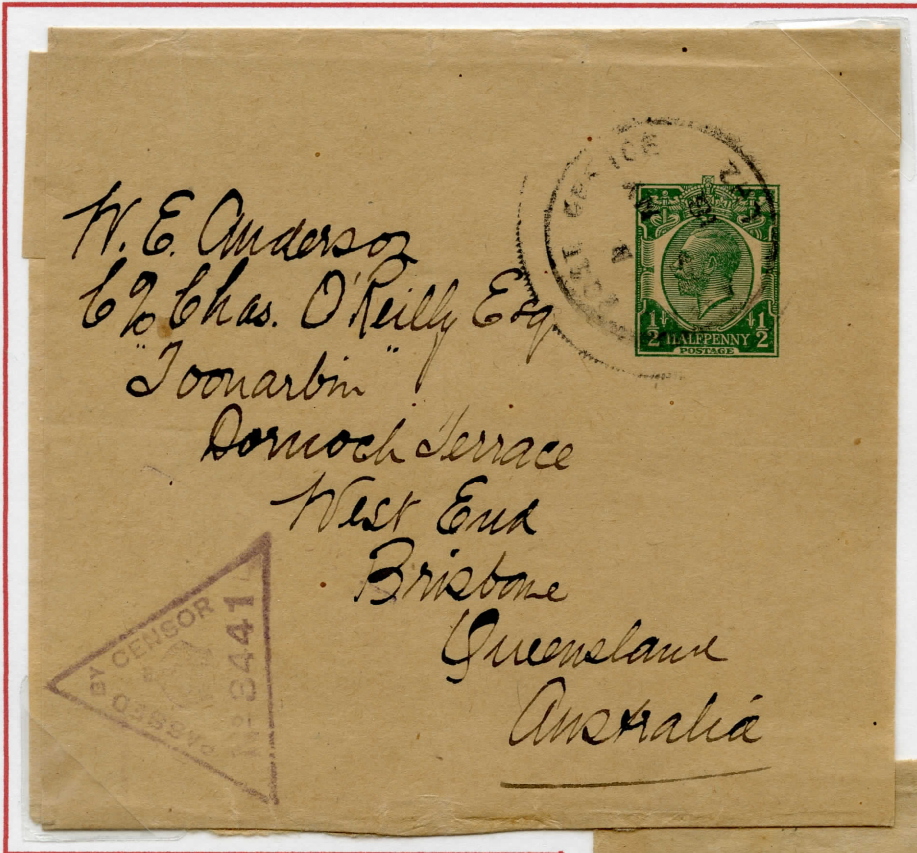 W. E. Anderson
C/o Chas. O'Reilly Esq
"Toonarbin"
Dornoch Terrace
West End
Brisbane
Queensland
Australia
POST OFFICE
1/2 HALFPENNY 1/2
POSTAGE
PASSED BY CENSOR
No 3441